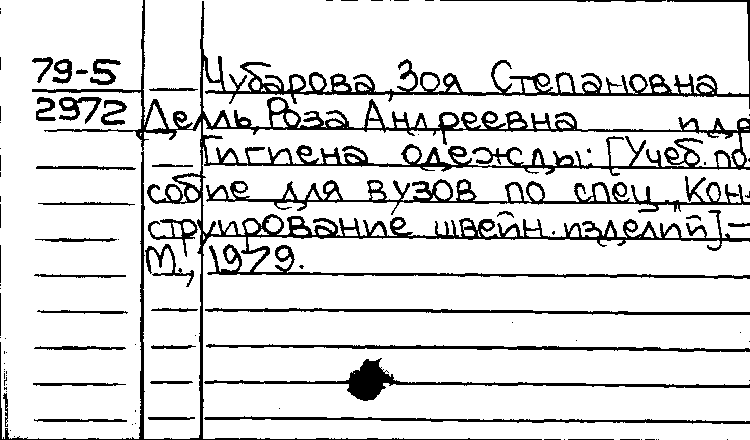 79-5 Чубарова, Зоя Степановна
2972 Делль, Роза Андреевна и др
Гигиена одежды: [Учеб. по-
собие для вузов по спец. „Кон-
струирование швейн. изделий].-
М., 1979.